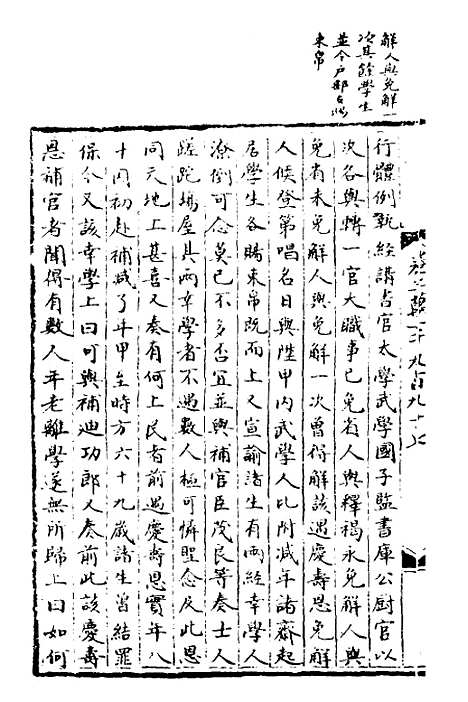 解人與免解一
次其餘學生
並令戶部占賜
束帛
行體例執經講書官太學武學國子監書庫公厨官以
次各與轉一官大職事已免省人與釋褐永免解人與
免省未免解人與免解一次曾得解該遇慶壽恩免解
人候登第唱名日與陞甲內武學人比附減年諸齋起
居學生各賜束帛既而上又宣諭諸生有兩經幸學人
潦倒可念莫已不多否宜並與補官臣茂良等奏士人
蹉跎場屋其兩幸學者不過數人極可憐聖念及此恩
同天地上甚喜又奏有何上民者前遇慶壽恩實年八
十同初赴補減了年甲至時方六十九歲諸生皆結罪
保今又該幸學上曰可與補迪功郎又奏前此該慶壽
恩補官者聞得有數人年老雖學遂無所歸上曰如何
卷之
千九百九十七